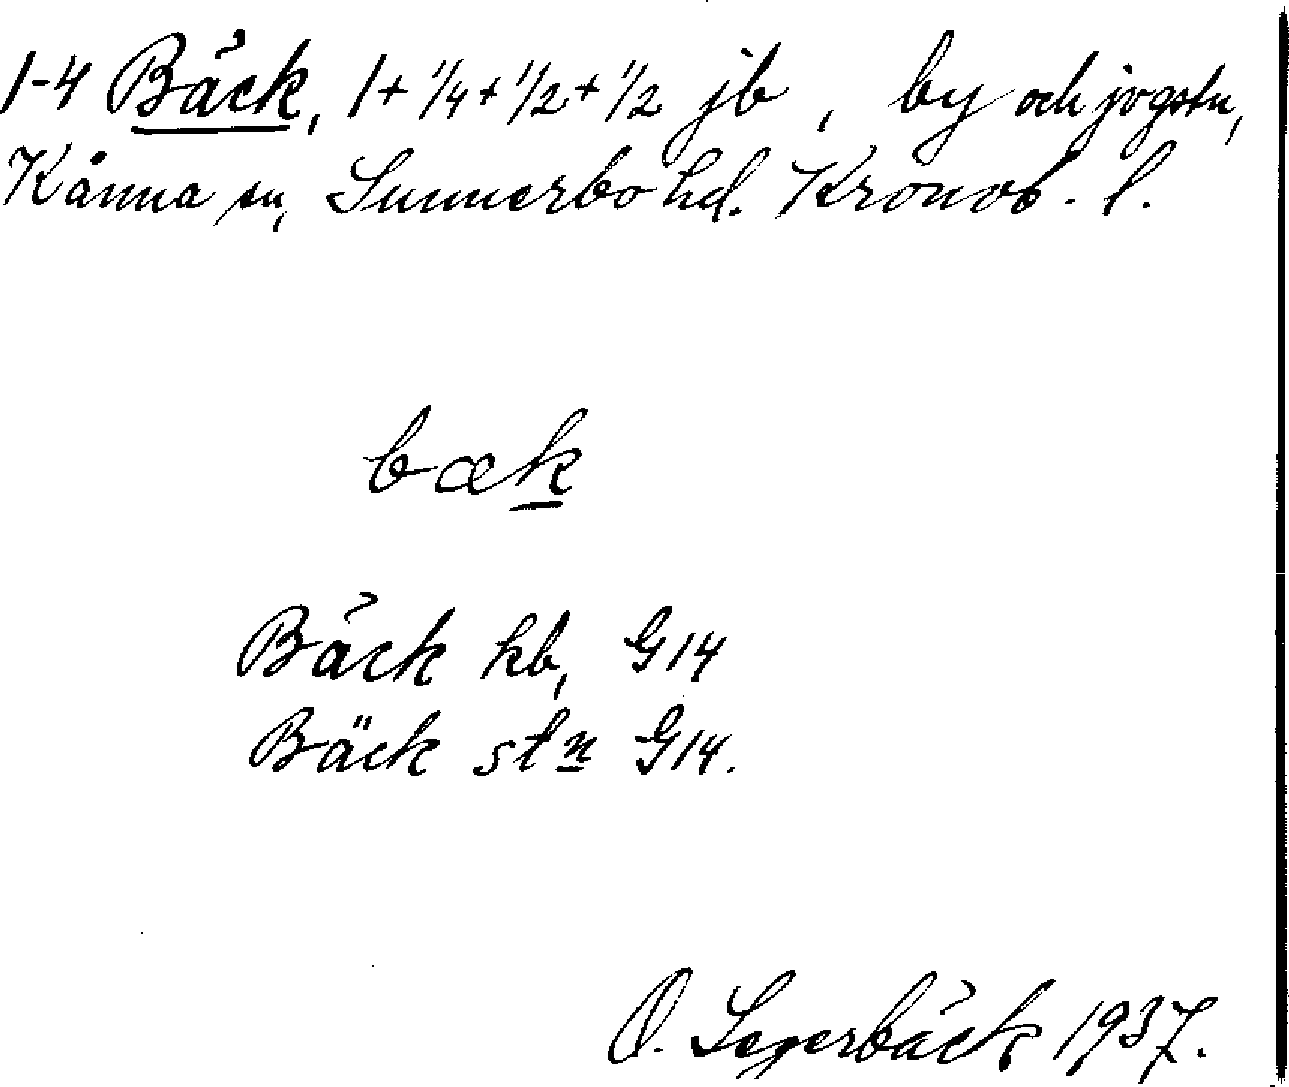 1-4 Bäck, 1+1/4+1/2+1/2 jb, by och jvgstn,
Kånna sn, Sunnerbo hd. Kronob. l.
bæk
Bäck hb, G14
Bäck stn G14.
O. Segerbäck 1937.